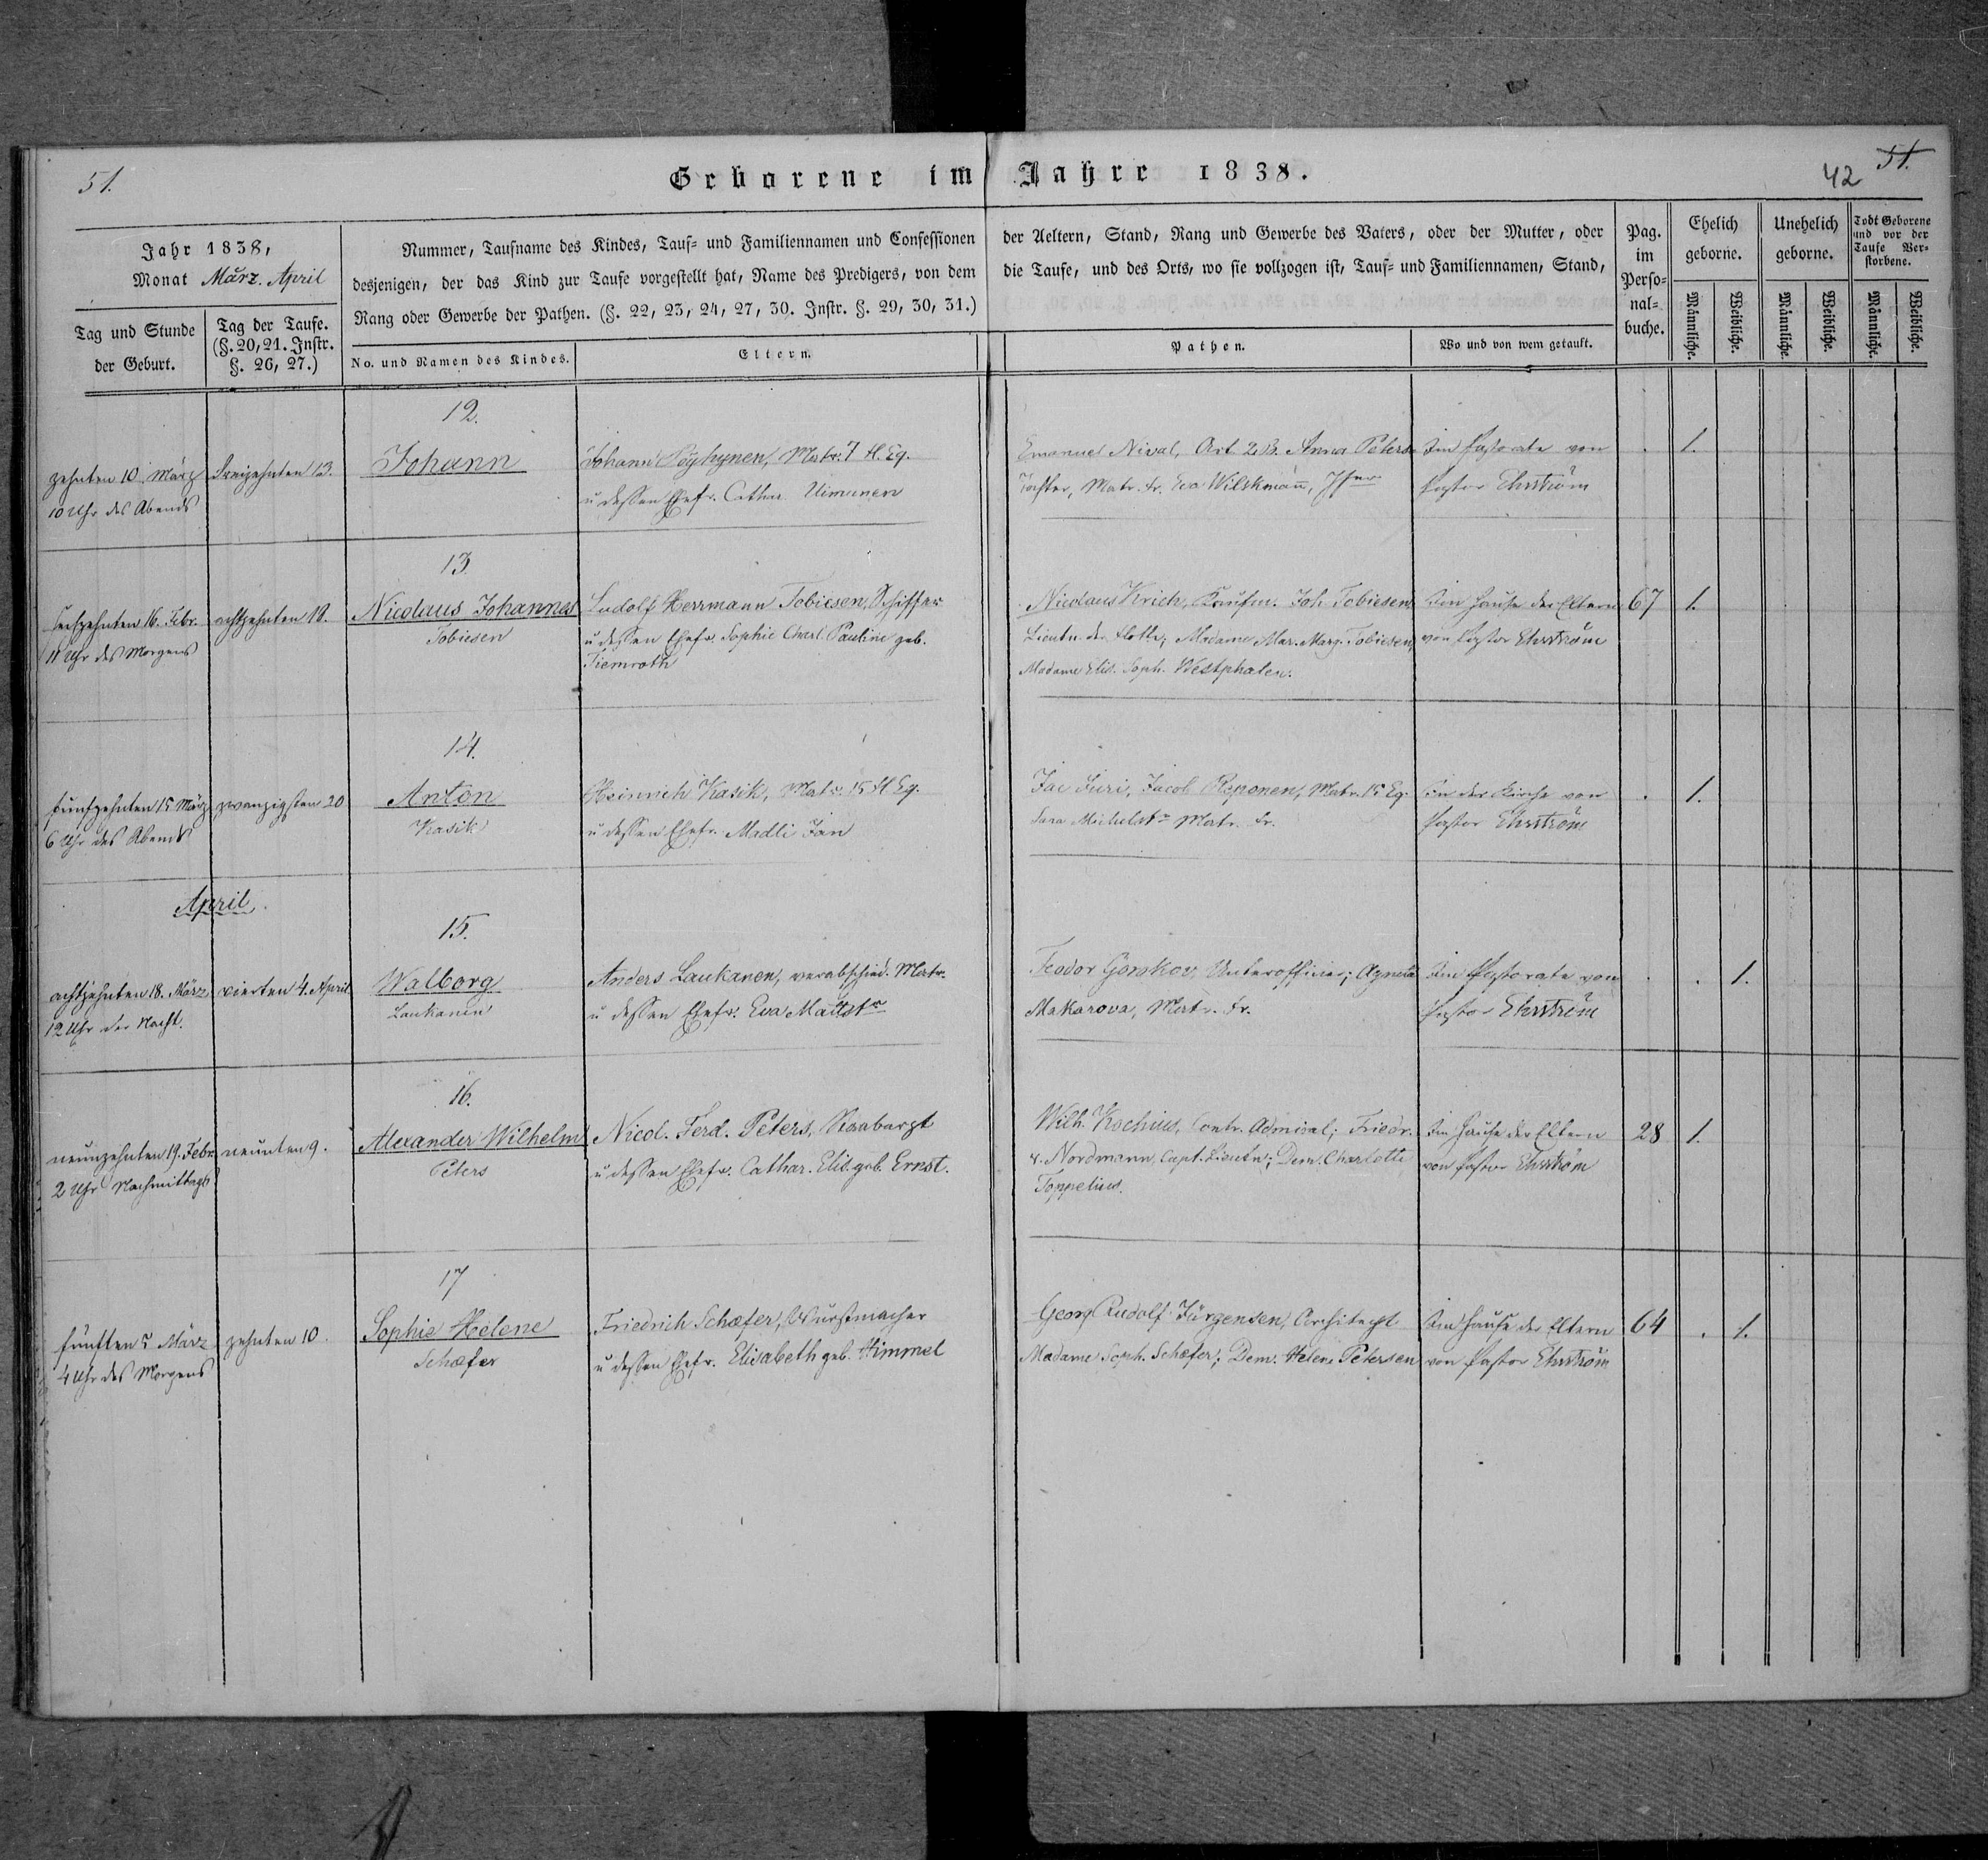 51.
Geborene im Jahre 1838.
42 51.
Jahr 1838,
Monat März. April
Tag und Stunde
der Geburt.
Tag der Taufe.
(§. 20, 21. Instr.
§. 26, 27.)
Nummer, Taufname des Kindes, Tauf- und Familiennamen und Confessionen
desjenigen, der das Kind zur Taufe vorgestellt hat, Name des Predigers, von dem
Rang oder Gewerbe der Pathen. (§. 22, 23, 24, 27, 30. Instr. §. 29, 30, 31.)
No. und Namen des Kindes.
Eltern.
der Aeltern, Stand, Rang und Gewerbe des Vaters, oder der Mutter, oder
die Taufe, und des Orts, wo sie vollzogen ist, Tauf- und Familiennamen, Stand,
Pathen.
Wo und von wem getauft.
Pag.
im
Perso-
nal-
buche.
Ehelich
geborne.
Männliche.
Weibliche.
Unehelich
geborne.
Männliche.
Weibliche.
Todt Geborene
und vor der
Taufe Ver-
storbene.
Männliche.
Weibliche.
12.
zehnten 10 März
10 Uhr des Abends
dreizehnten 13.
Johann
Johann Pöyhynen, Matr. 7 Fl. Eq.
u dessen Ehefr. Cathar. Uimunen
Emanuel Nival, Art. 2.B. Anna Peters
Tochter, Matr. Fr. Eva Wilskmañ,
Im Pastorate von
Pastor Ehrström
1.
13.
sechzehnten 16. Febr.
11 Uhr des Morgens
achtzehnten 18.
Nicolaus Johannes
Tobiesen
Ludolf Herrmann Tobiesen, Schiffer
u dessen Ehefr. Sophie Charl. Pauline geb.
Tiemroth
Nicolaus Krich, Kaufm. Joh. Tobiesen
Lieutn. der Flotte; Madame Mar. Marg. Tobiesen,
Madame Elis. Soph. Westphalen.
Im Hause der Eltern
von Pastor Ehrström
67
1.
14.
fünfzehnten 15 März
6 Uhr des Abends
zwanzigsten 20
Anton
Kasik
Heinrich Kasik, Matr. 15 Fl. Eq.
u dessen Ehefr. Madli Jan
Jac Juri, Jacob Reponen, Matr. 15 Eq.
Sara Michelstr Matr. Fr.
In der Kirche von
Pastor Ehrström
1.
April.
15.
achtzehnten 18. März
12 Uhr der Nacht.
vierten 4. April
Walborg
Laukanen
Anders Laukanen, verabschied. Matr.
u dessen Ehefr. Eva Mattstr
Feodor Gorskov, Unterofficier; Agneta
Makarova, Matr. Fr.
Im Pastorate von
Pastor Ehrström
1.
16.
neunzehnten 19. Febr.
2 Uhr Nachmittags
neunten 9.
Alexander Wilhelm
Peters
Nicol. Ferd. Peters, Staabarzt
u dessen Ehefr. Cathar. Elis. geb. Ernst.
Wilh. Kochius, Contr. Admiral; Friedr.
v. Nordmann, Capt. Lieutn; Dem. Charlotte
Toppelius.
Im Hause der Eltern
von Pastor Ehrström
28
1.
17
fünften 5 März
4 Uhr des Morgens
zehnten 10.
Sophie Helene
Schæfer
Friedrich Schæfer, Wurstmacher
u dessen Ehefr. Elisabeth geb. Himmel
Georg Rudolf Jürgensen, Architect
Madame Soph. Schæfer; Dem. Helene Petersen
Im Hause der Eltern
von Pastor Ehrström
64
1.